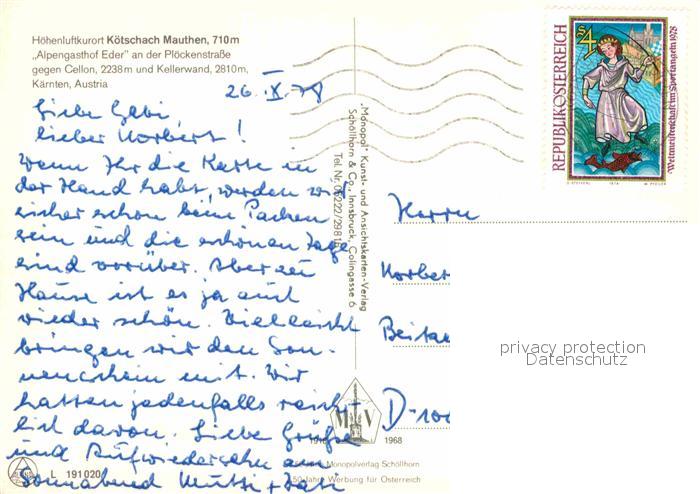 Höhenluftkurort Kötschach Mauthen, 710m
„Alpengasthof Eder" an der Plöckenstraße
gegen Cellon, 2238m und Kellerwand, 2810m,
Kärnten, Austria
26. IX. 78
Liebe Gabi,
lieber Norbert!
Wenn Ihr die Karte in
der Hand habt, werden wir
sicher schon beim Packen
sein und die schönen Tage
sind vorüber. Aber zu
Hause ist es ja auch
wieder schön. Vielleicht
bringen wir den Son-
nenschein mit. Wir
hatten jedenfalls reich-
lich davon. Liebe Grüße
und Aufwiedersehn am
Sonnabend Mutti + Vati
„Monopol" Kunst- und Ansichtskarten-Verlag
Schöllhorn & Co., Innsbruck, Colingasse 6
Tel. Nr. 05222/29816
REPUBLIK ÖSTERREICH
S 4
Weltmeisterschaft im Sportangeln 1978
1978
Herrn
Norber
D-100
privacy protection
Datenschutz
M V
1918 1968
Monopolverlag Schöllhorn
50 Jahre Werbung für Österreich
L 191020